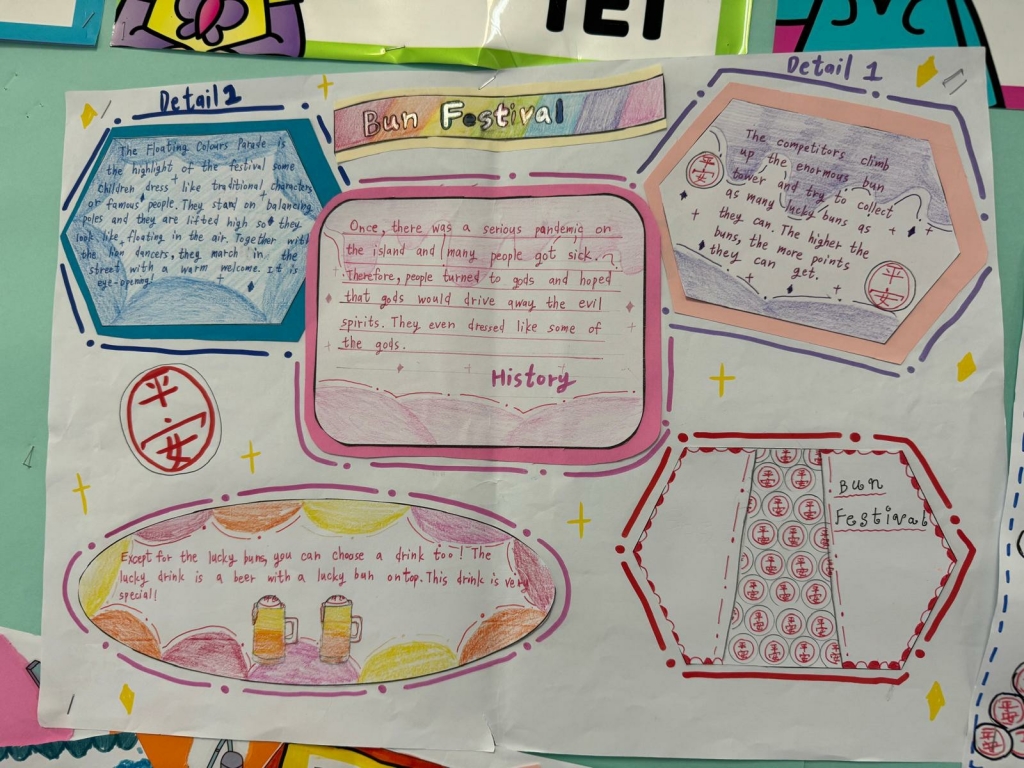 TET
Bun Festival
Detail 1
The Floating Colours Parade is
the highlight of the festival some
children dress like traditional characters
or famous people. They stand on balancing
poles and they are lifted high so they
look like floating in the air. Together with
the lion dancers, they march in the
street with a warm welcome. It is
eye-opening!
Once, there was a serious pandemic on
the island and many people got sick.
Therefore, people turned to gods and hoped
that gods would drive away the evil
spirits. They even dressed like some of
the gods.
History
Detail 1
The competitors climb
up the enormous bun
tower and try to collect
as many lucky buns as
they can. The higher the
buns, the more points
they can get.
平安
平安
平安
Except for the lucky buns, you can choose a drink too! The
lucky drink is a beer with a lucky bun ontop. This drink is very
special!
Bun
Festival
平安